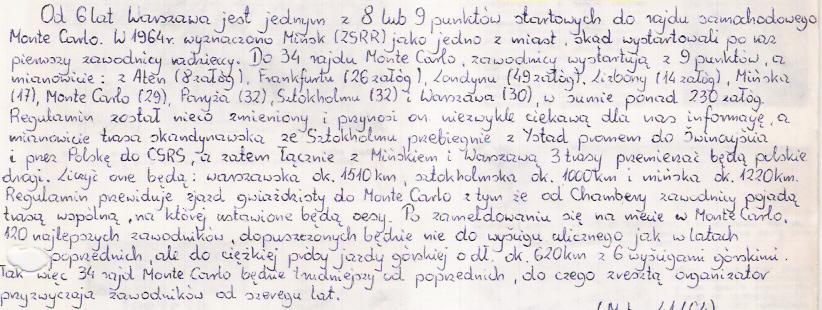 Od 6 lat Warszawa jest jednym z 8 lub 9 punktów startowych do rajdu samochodowego
Monte Carlo. W 1964r. wyznaczono Mińsk (ZSRR) jako jedno z miast, skąd wystartowali po raz
pierwszy zawodnicy radzieccy. Do 34 rajdu Monte Carlo, zawodnicy wystartują z 9 punktów, a
mianowicie: z Aten (8 załóg), Frankfurtu (26 załóg), Londynu (49 załóg), Lizbony (14 załóg), Mińska
(17), Monte Carlo (29), Paryża (32), Sztokholmu (32) i Warszawa (30), w sumie ponad 230 załóg.
Regulamin został nieco zmieniony i przynosi on niezwykle ciekawą dla nas informację, a
mianowicie trasa skandynawska ze Sztokholmu przebiegnie z Ystad promem do Świnoujścia
i przez Polskę do CSRS, a zatem łącznie z Mińskiem i Warszawą 3 trasy przemierzać będą polskie
drogi. Liczyć one będą: warszawska ok. 1510 km, sztokholmska ok. 1000 km i mińska ok. 1220 km.
Regulamin przewiduje zjazd gwiaździsty do Monte Carlo z tym że od Chambery zawodnicy pojadą
trasą wspólną, na której ustawione będą oesy. Po zameldowaniu się na mecie w Monte Carlo,
120 najlepszych zawodników, dopuszczonych będzie nie do wyścigu ulicznego jak w latach
poprzednich, ale do ciężkiej próby jazdy górskiej o dł. ok. 620 km z 6 wyścigami górskimi.
Tak więc 34 rajd Monte Carlo będzie trudniejszy od poprzednich, do czego zresztą organizator
przyzwyczaja zawodników od szeregu lat.